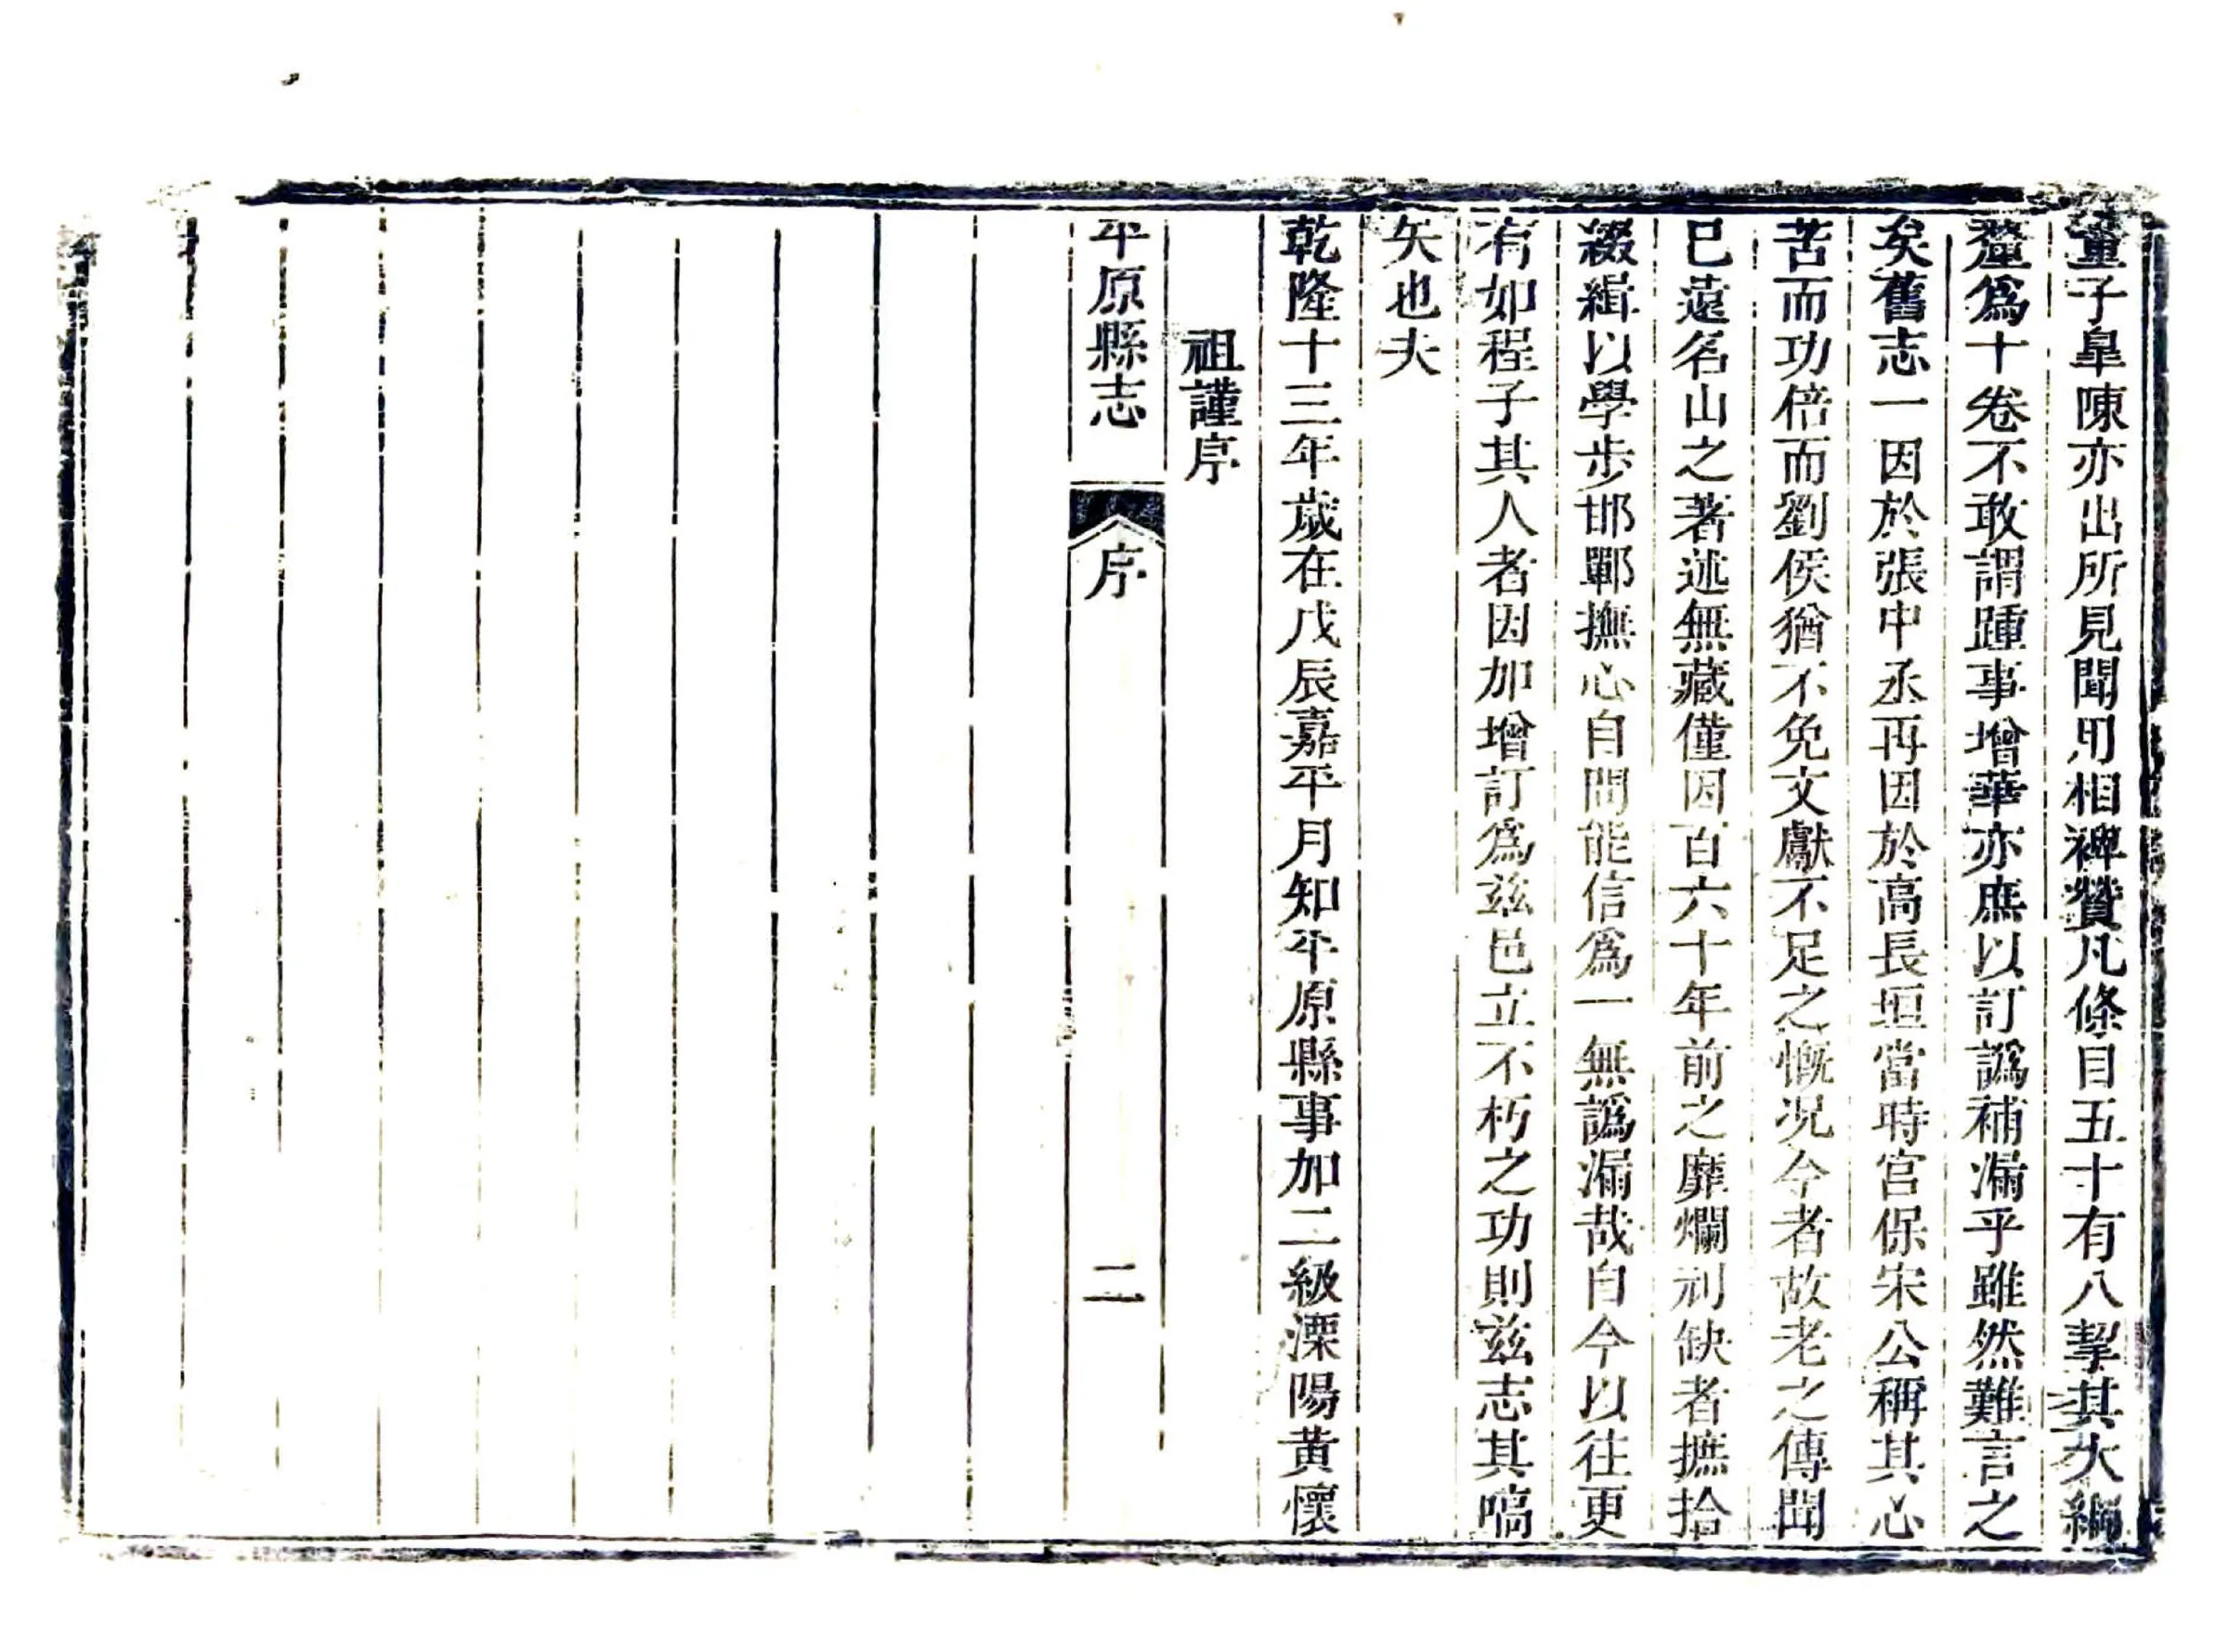 董子皐陳亦出所見聞用相裨贊凡條目五十有八挈其大綱
釐爲十卷不敢謂踵事增華亦庶以訂譌補漏乎雖然難言之
矣舊志一因於張中丞再因於高長垣當時宮保宋公稱其心
苦而功倍而劉侯猶不免文獻不足之慨况今者故老之傳聞
已遠名山之著述無藏僅因百六十年前之靡爛刓缺者摭拾
綴緝以學步邯鄲撫心自問能信爲一無譌漏哉自今以往更
有如程子其人者因加增訂爲兹邑立不朽之功則兹志其嚆
矢也夫
乾隆十三年歲在戊辰嘉平月知平原縣事加二級溧陽黃懷
祖謹序
平原縣志
序
二